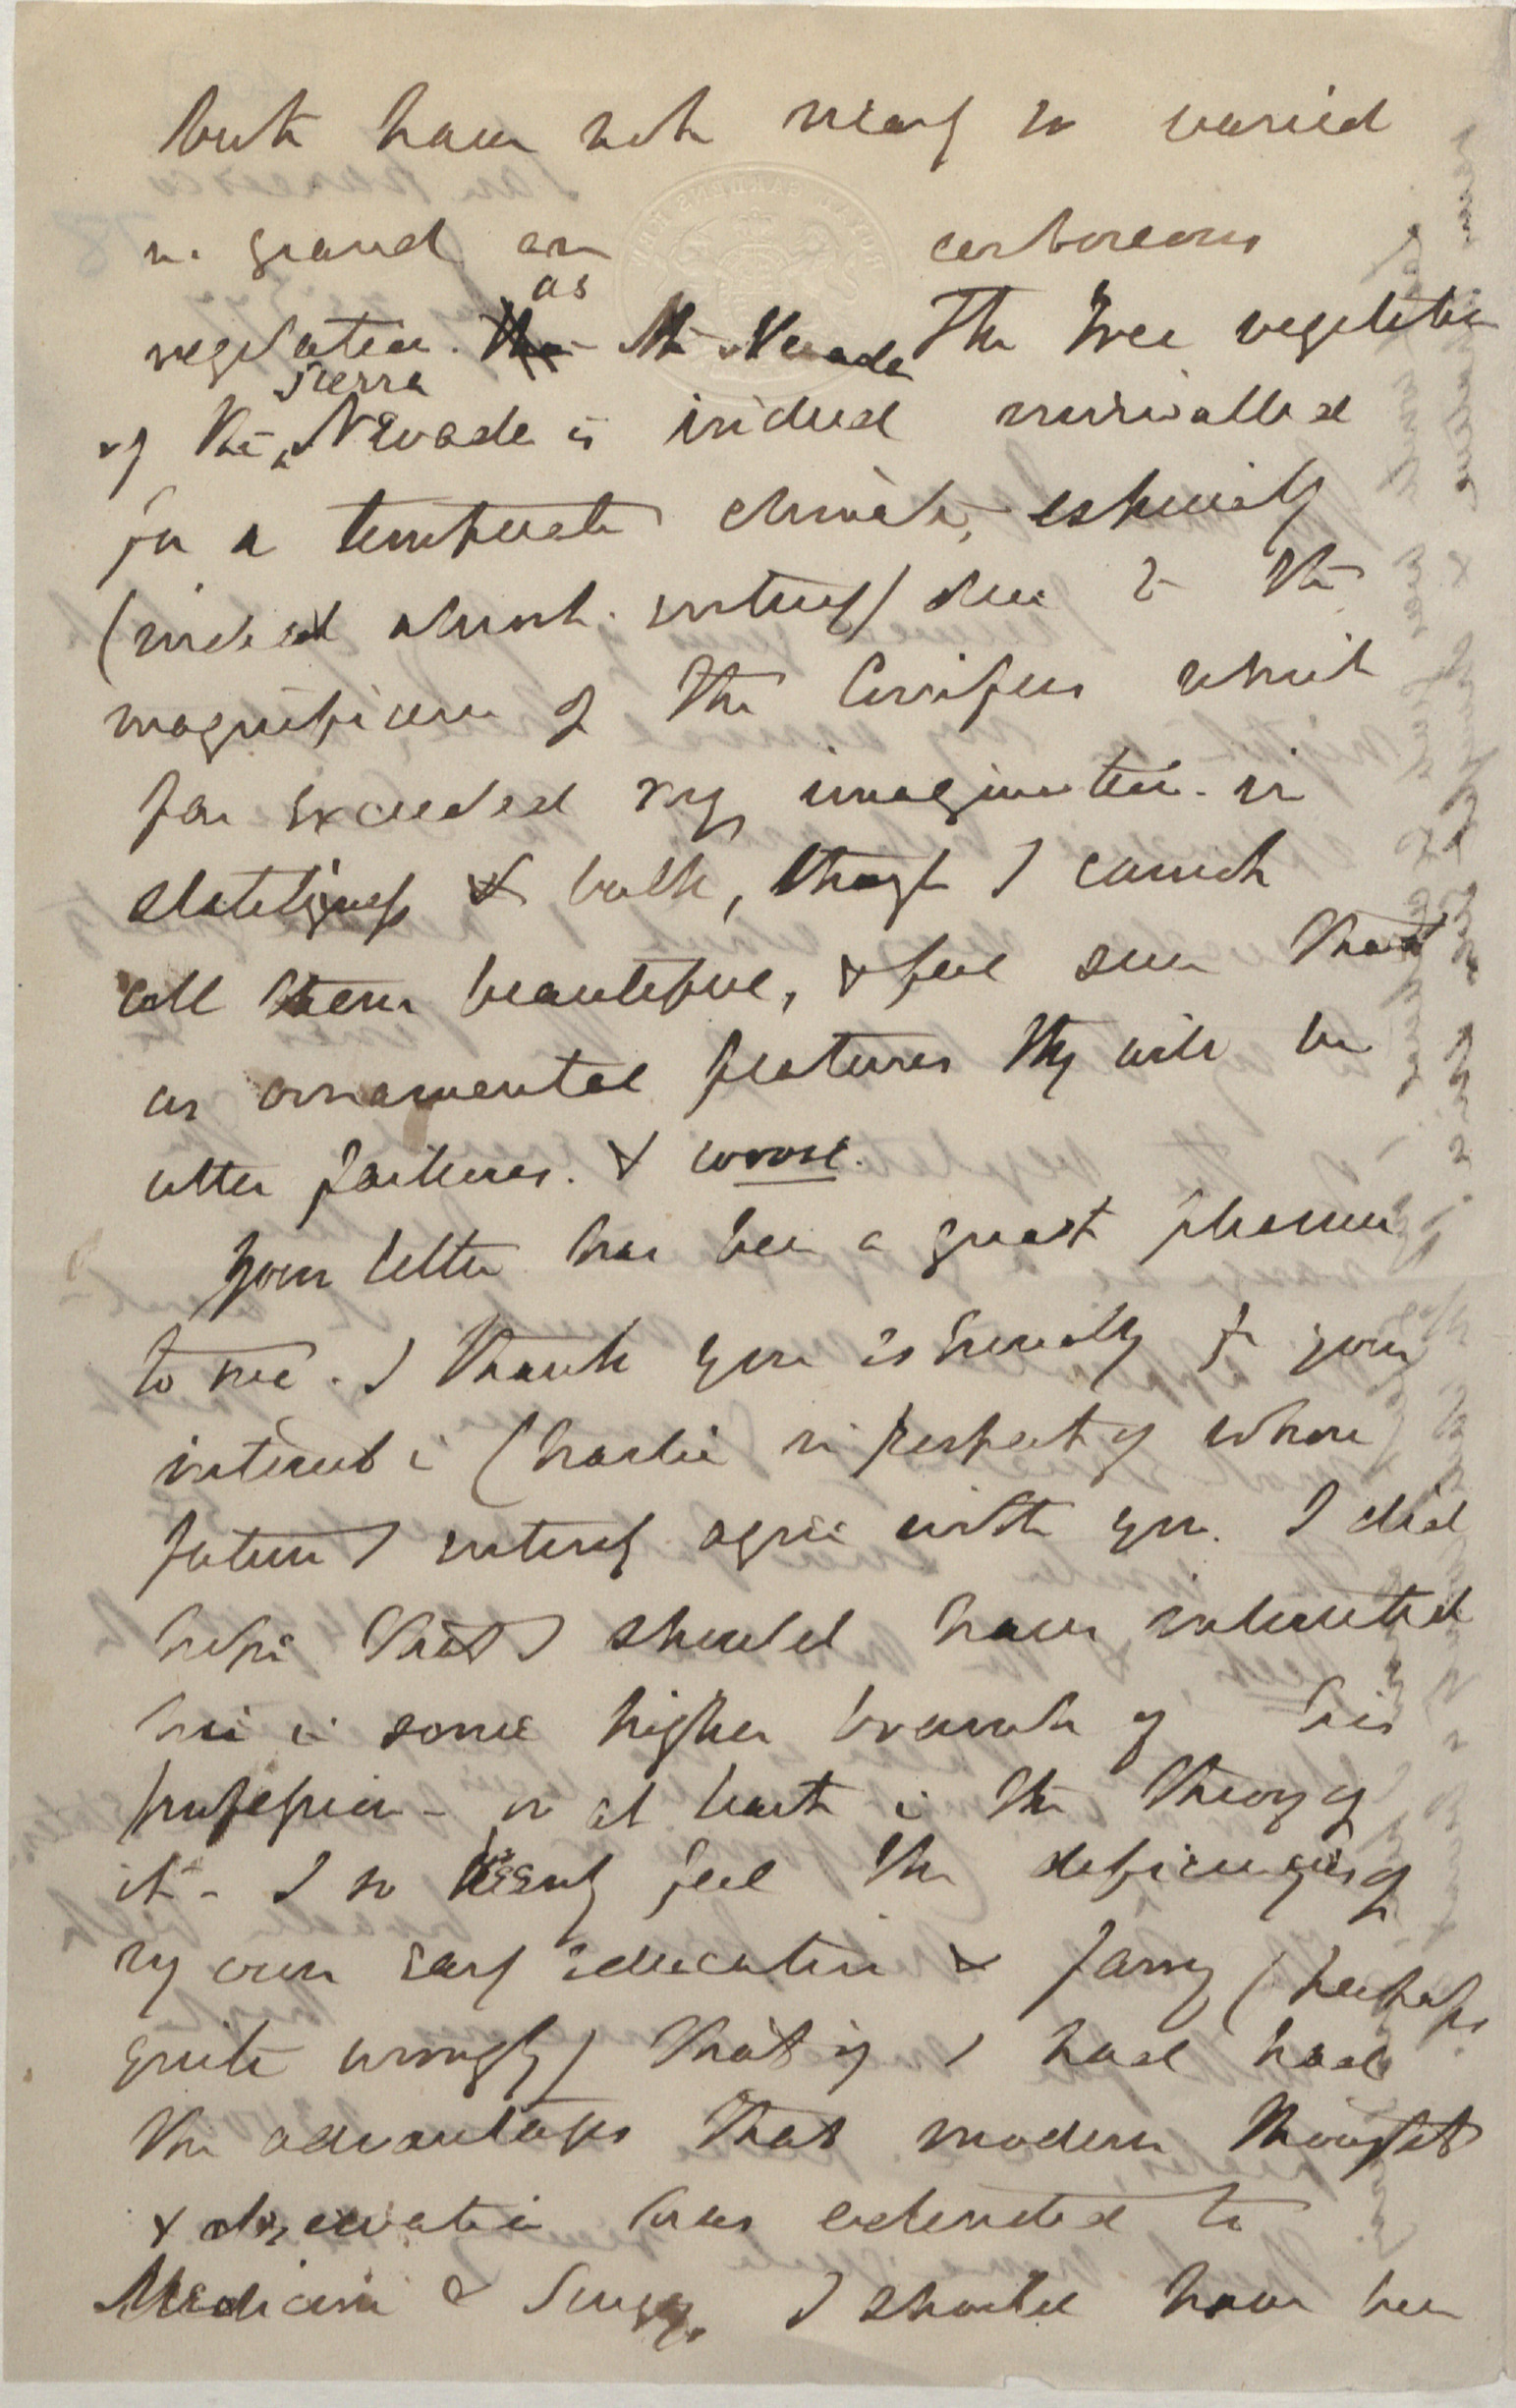 but have not nearly so varied
or grand an arboreous
as
vegetation. the Nevada The tree vegetation
Sierra
of the Nevada is indeed unrivalled
for a temperate climate, especially
(indeed almost entirely) due to the
magnificence of the Conifers which
far exceeded my imagination in
stateliness & bulk, though I cannot
call them beautiful, & feel sure that
as ornamental features they will be
utter failures. & worse.
Your letter has been a great pleasure
to me. I thank you especially for your
interest in Charlie in respect of whose
future I entirely agree with you. I did
hope that I should have interested
him in some higher branch of his
profession – or at least in the theory of
it – I so keenly feel the deficiencies of
my own early education & fancy (perhaps
quite wrongly) that if I had had
the advantages that modern thought
& observation has extended to
Medicine & Surgery, I should have been